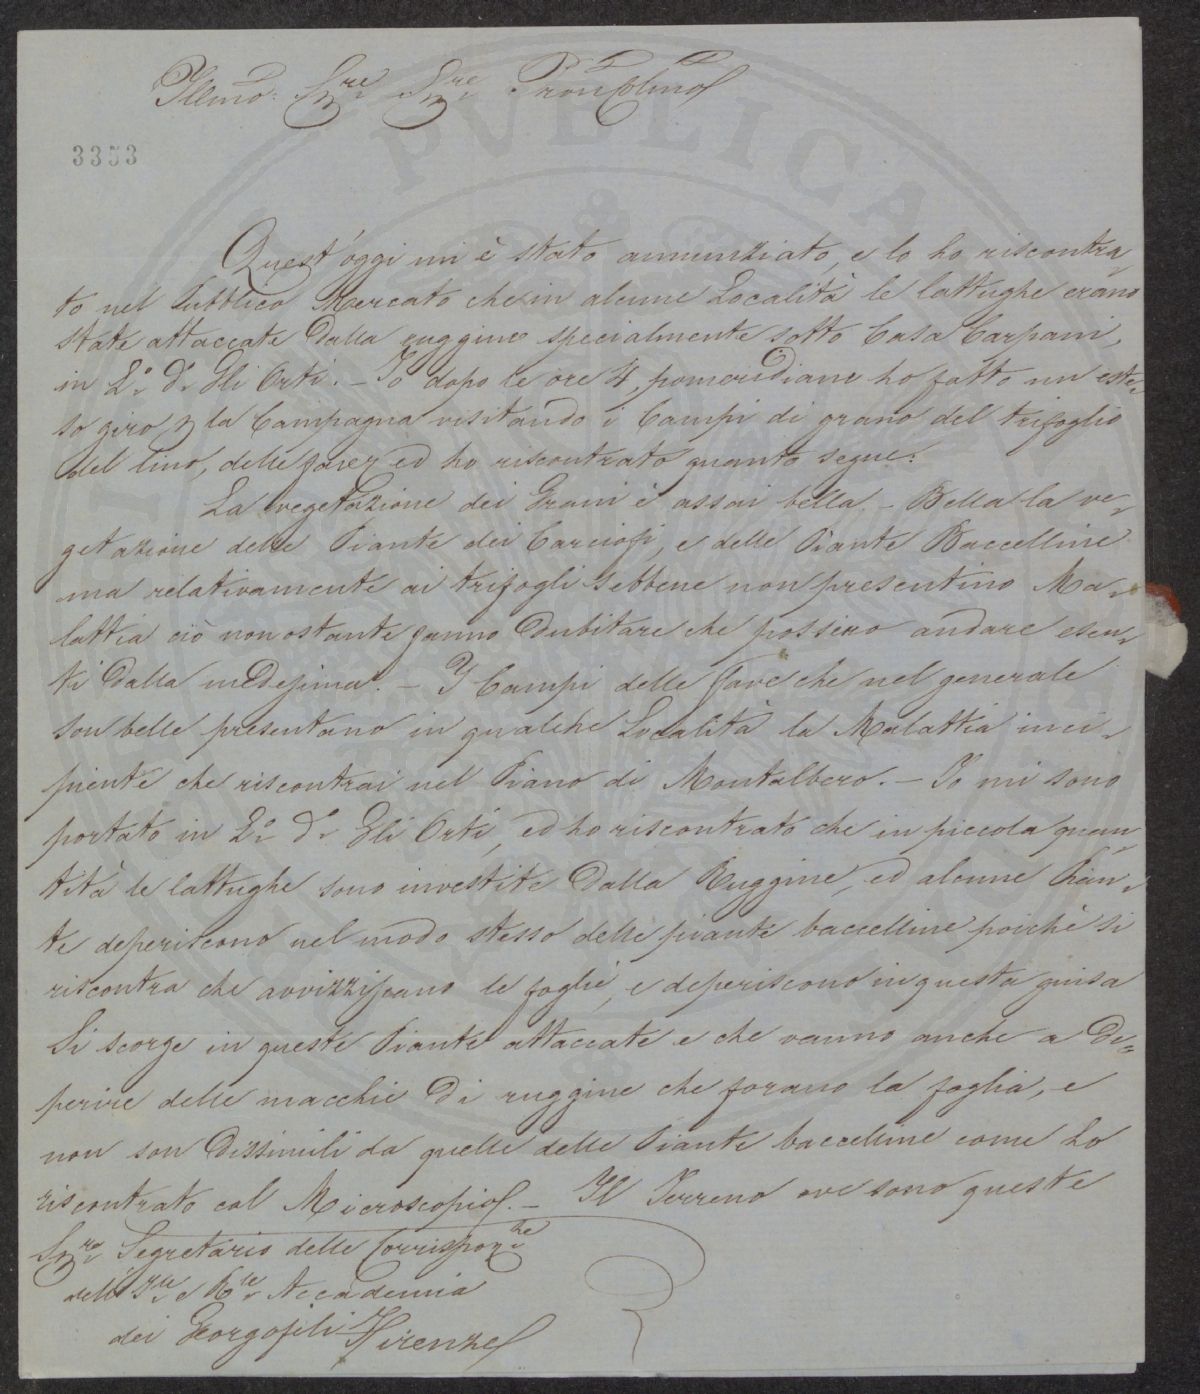 Illmo: Sigre Sigre Pron Colmo
3353
Quest'oggi mi è stato annunziato, e lo ho riscontra-
to nel Pubblico Mercato che in alcune Località le lattughe erano
state attaccate dalla ruggine specialmente sotto Casa Carpani,
in L.o D.o Gli Orti. - Io dopo le ore 4 pomeridiane ho fatto un este-
so giro p la Campagna visitando i Campi di grano del trifoglio
del lino, delle fave, ed ho riscontrato quanto segue.
La vegetazione dei Grani è assai bella. - Bella la ve-
getazione delle Piante dei Carciofi, e delle Piante Baccelline
ma relativamente ai trifogli sebbene non presentino Ma-
lattia ciò non ostante fanno dubitare che possino andare esen-
ti dalla medesima. - I Campi delle Fave che nel generale
son belle presentano in qualche Località la Malattia inci-
piente che riscontrai nel Piano di Montalbero. - Io mi sono
portato in L.o D.o Gli Orti, ed ho riscontrato che in piccola quan-
tità le lattughe sono investite dalla Ruggine, ed alcune Pian-
te deperiscono nel modo stesso delle piante baccelline poichè si
riscontra che avvizziscano le foglie, e deperiscono in questa guisa
Si scorge in queste Piante attaccate e che vanno anche a de-
perire delle macchie di ruggine che forano la foglia, e
non son dissimili da quelle delle Piante baccelline come ho
riscontrato col Microscopio. - Il Terreno ove sono queste
Sigre Segretario delle Corrisponze
dell' I.le e R.le Accademia
dei Georgofili Firenze
PVBLICA